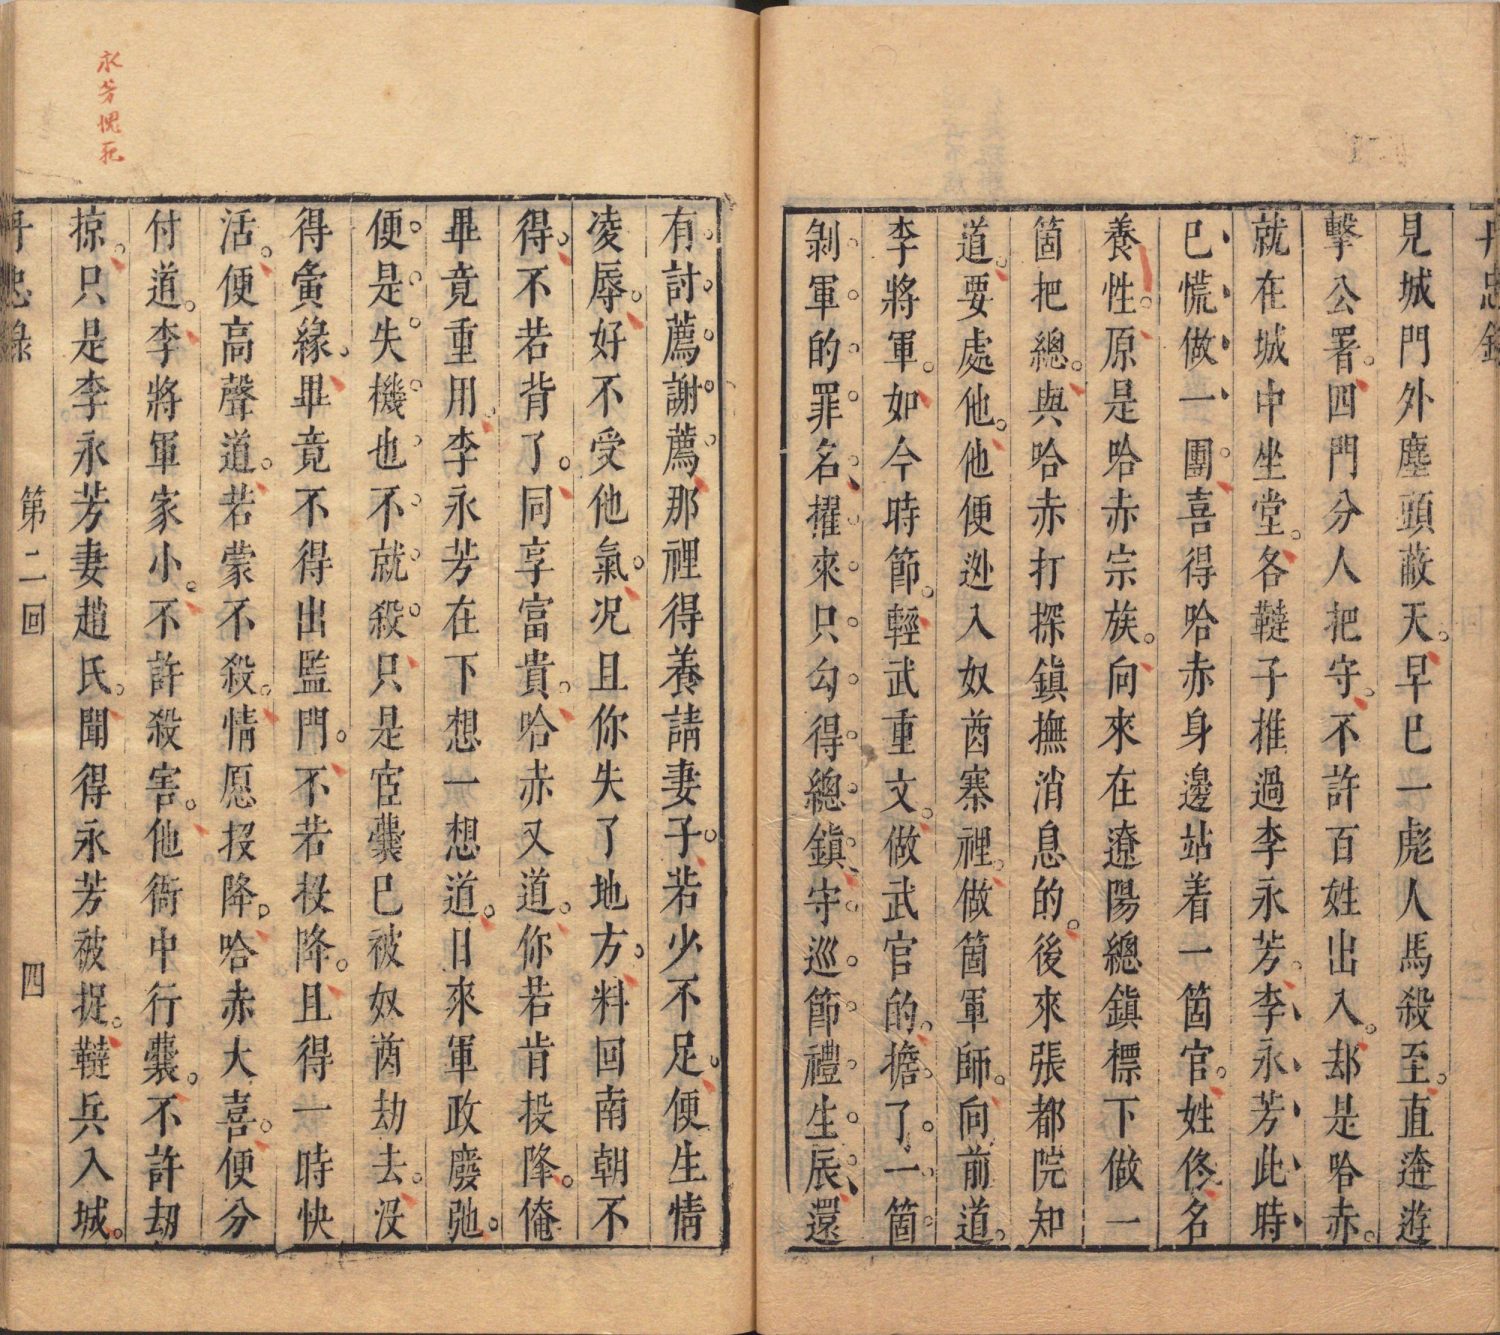 丹忠錄
見城門外塵頭蔽天。早已一彪人馬殺至。直遶遊
擊公署。四門分人把守。不許百姓出入。却是哈赤。
就在城中坐堂。各韃子推過李永芳。李永芳此時
已慌做一團。喜得哈赤身邊站着一箇官。姓佟名
養性。原是哈赤宗族。向來在遼陽總鎮標下做一
箇把總。與哈赤打探鎮撫消息的。後來張都院知
道。要處他。他便逊入奴酋寨裡。做箇軍師。向前道。
李將軍。如今時節。輕武重文。做武官的。擔了。一箇
剝軍的罪名、擢來只勾得總鎮、守巡節禮生辰、還
有討薦謝薦。那裡得養請妻子。若少不足。便生情
凌辱。好不受他氣。况且你失了地方。料回南朝不
得。不若背了。同享富貴。哈赤又道。你若肯投降。俺
畢竟重用。李永芳在下想一想道。日來軍政廢弛。
便是失機也不就殺。只是宦囊已被奴酋劫去。没
得夤緣。畢竟不得出監門。不若投降。且得一時快
活。便高聲道。若蒙不殺。情愿投降。哈赤大喜。便分
付道。李將軍家小。不許殺害。他衙中行囊。不許刼
掠。只是李永芳妻趙氏。聞得永芳被捉。韃兵入城。
丹忠錄
第二回
四
永芳愧死